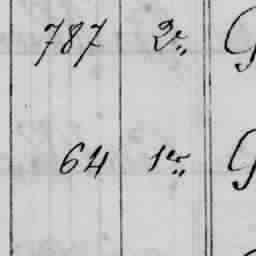 787 2e G
64 1er G